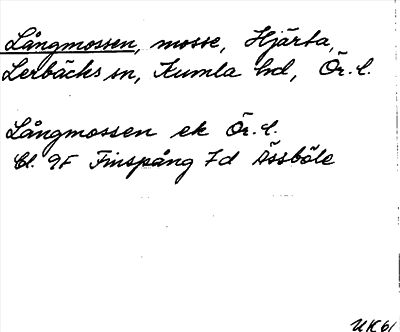 Långmossen, mosse, Hjärta,
Lerbäcks sn, Kumla hd, Ör. l.
Långmossen ek Ör. l.
Bl. 9F Finspång 7d Åssböle
UK 61